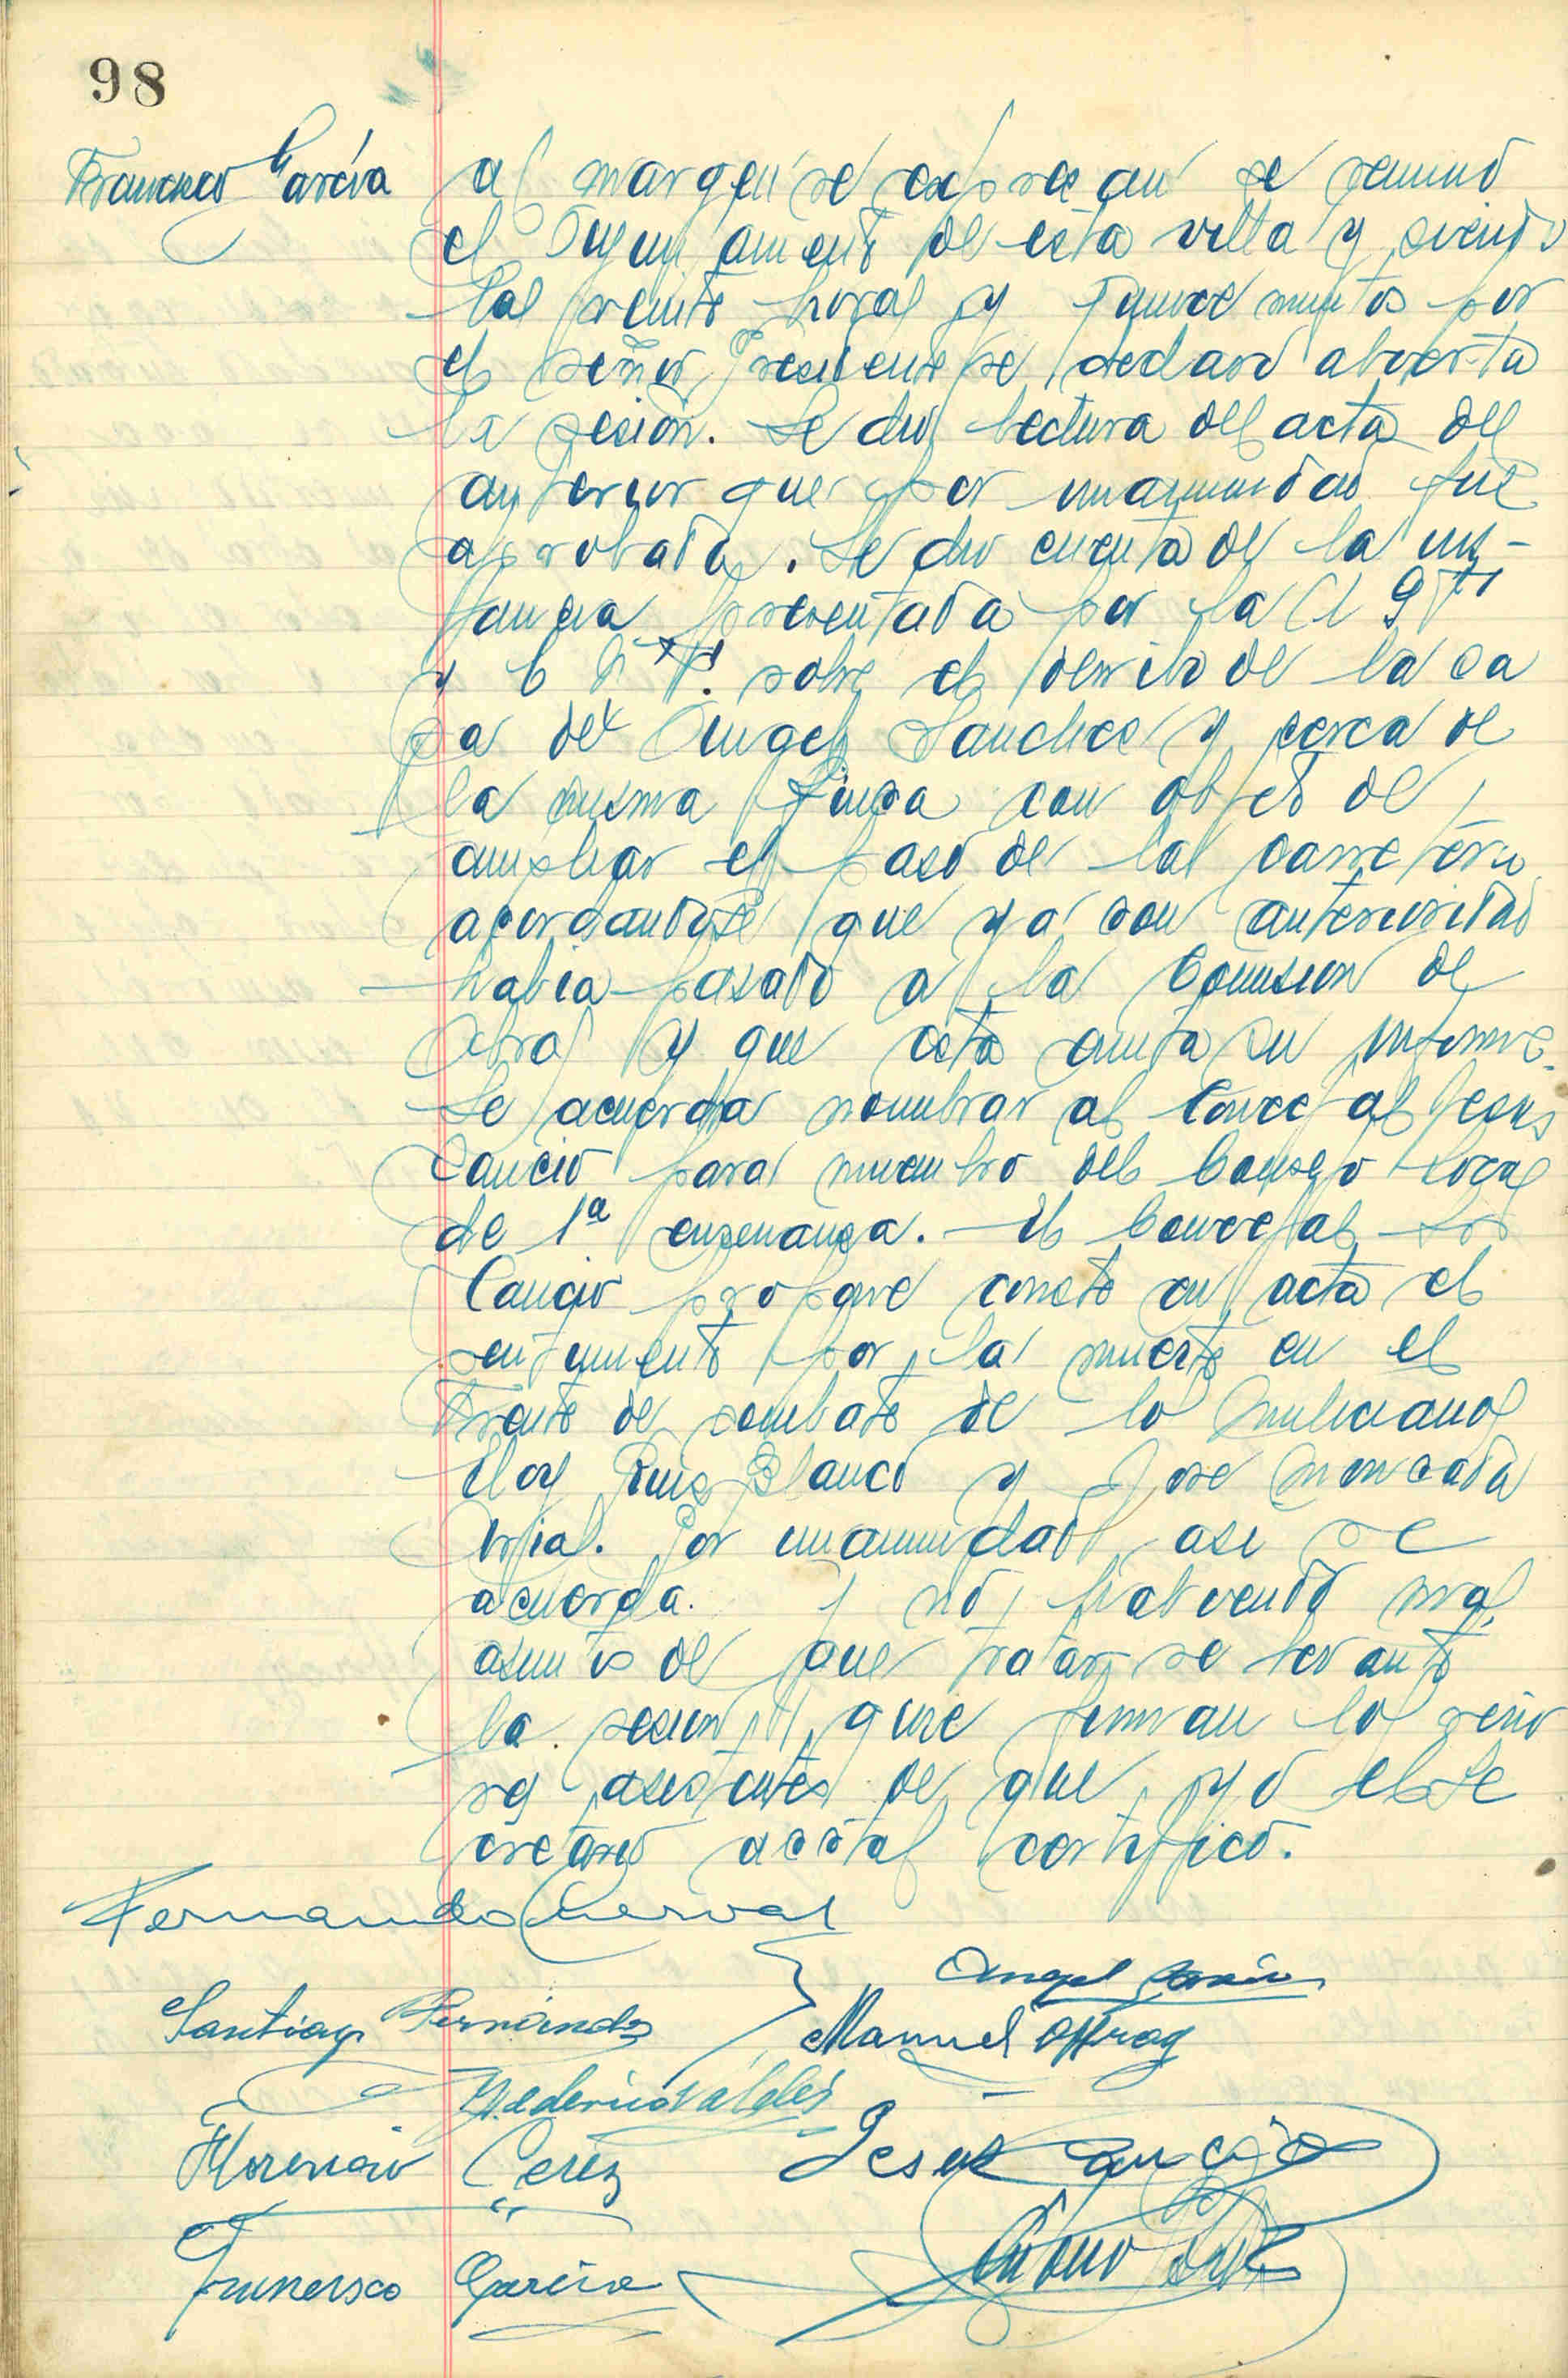 98
Francisco García
al margen se expresan se reunió
el Ayuntamiento de esta villa y siendo
las veinte horas y quince minutos por
el señor Presidente se declaró abierta
la sesión. Se dio lectura del acta del
anterior que por unanimidad fue
aprobada. Se dio cuenta de la ins-
tancia presentada por la U G T
y C N T. sobre el derribo de la ca
sa de Angel Sanchez y cerca de
la misma finca con objeto de
ampliar el paso de la carretera
acordandose que ya con anterioridad
habia pasado a la Comision de
Obras y que esta emita su informe.
Se acuerda nombrar al Concejal Jesus
Cancio para miembro del Consejo Local
de 1ª enseñanza. - El Concejal Sr
Cancio propone conste en acta el
sentimiento por la muerte en el
Frente de combate de los milicianos
Eloy Ruiz Blanco y Jose Moncada
Por unanimidad asi se
acuerda. Y no habiendo mas
asuntos de que tratar se levantó
la sesion que firman los seño
res asistentes de que yo el Se
cretario acctal certifico.
Fernando
Angel
Santiago Fernández
Manuel
Federico Valdés
Florencio Cerez
Jesus Cancio
Francisco García